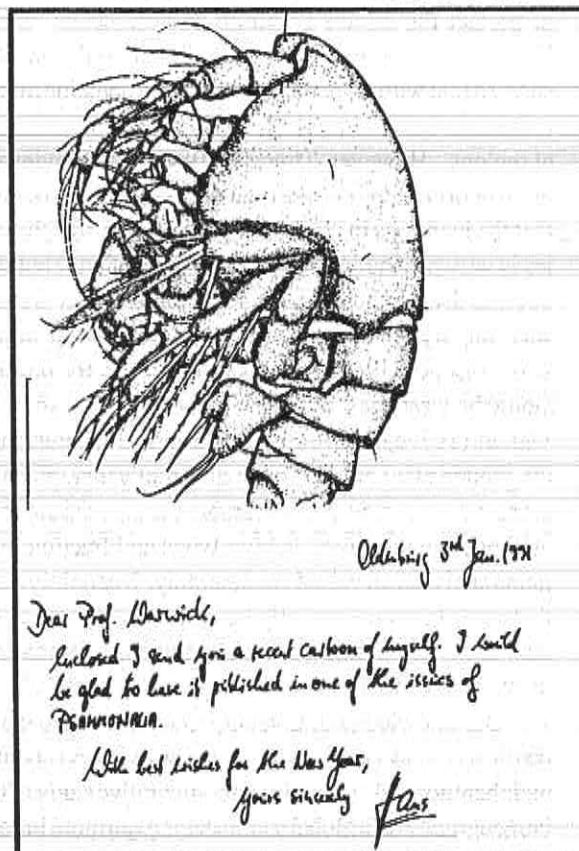 Oldenburg 3rd Jan. 1991
Dear Prof. Warwick,
Enclosed I send you a recent cartoon of myself. I would
be glad to have it published in one of the issues of
PSAMMONALIA.
With best wishes for the New Year,
Yours sincerely
Hans